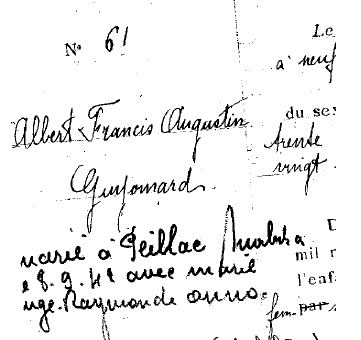 N° 61
Albert Francis Augustin
Guyomard
marié à Peillac Morbihan
le 8.9.41 avec Marie
Ange Raymonde Danno.
Le
à neuf
du se
trente
vingt
mil n
l'enfa
fem. par